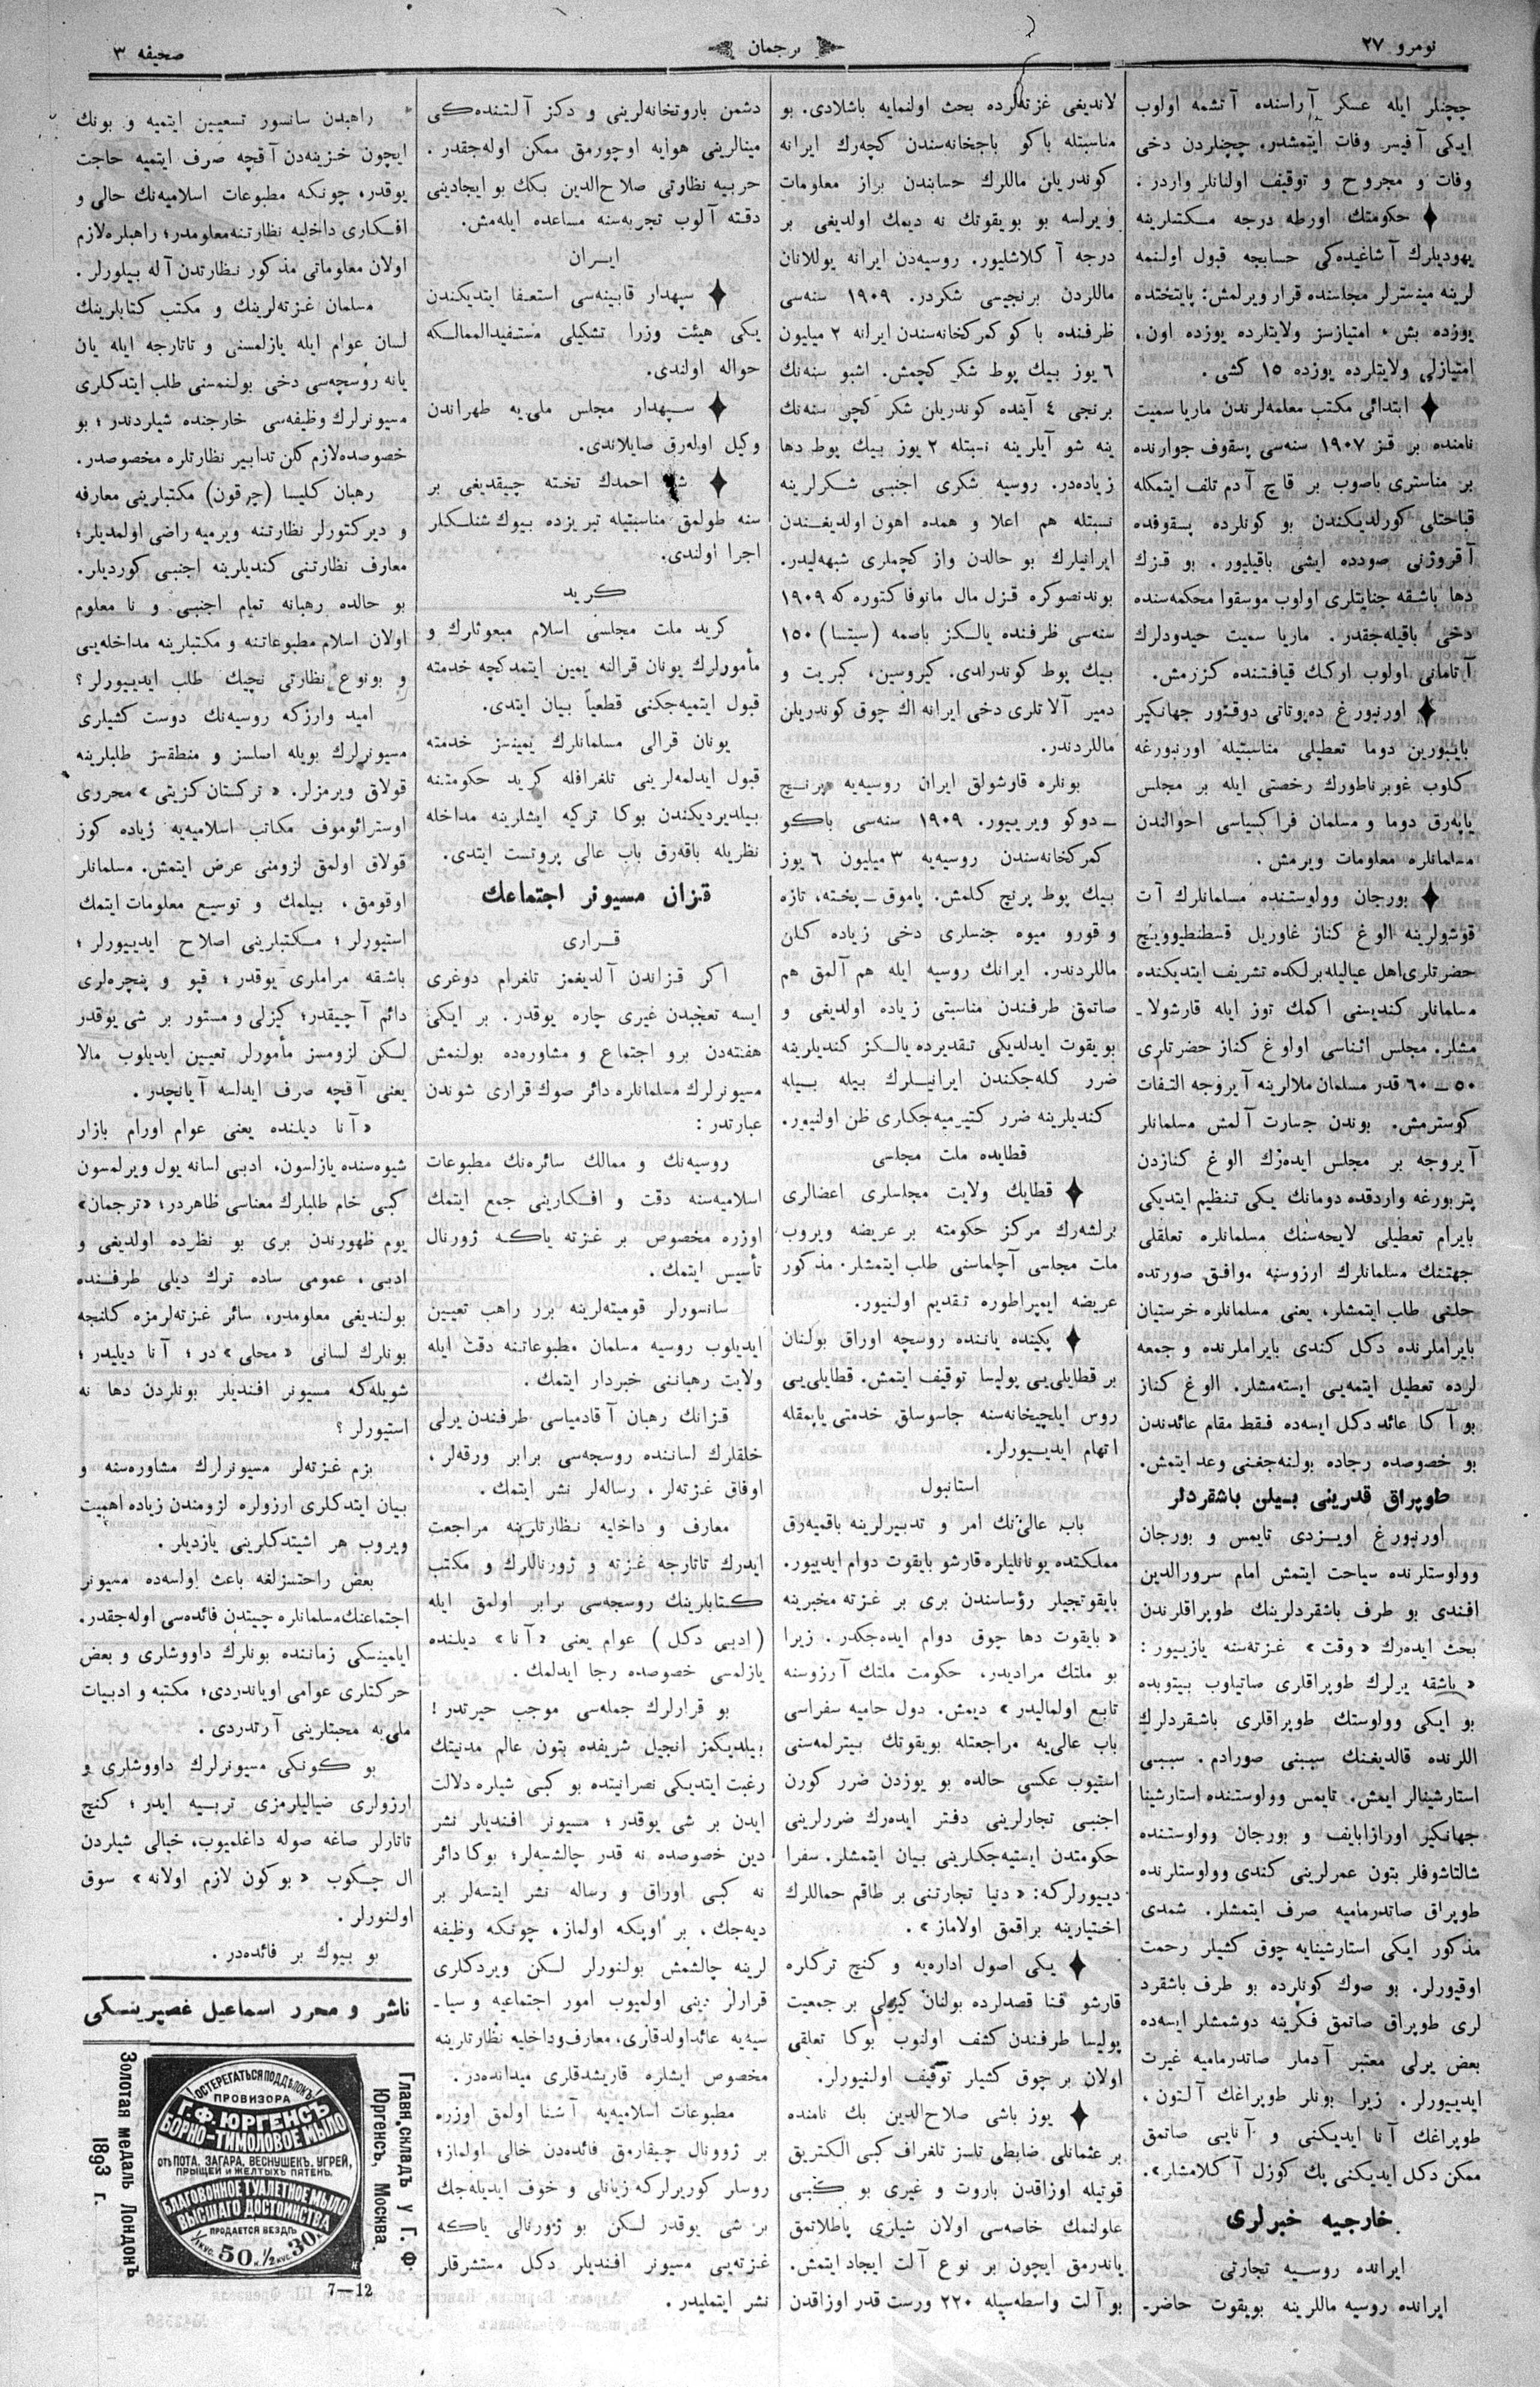 نومرو ٢٧
ترجمان
صحیفه ٣
چچنلر ایله عسکر آراسنده آتشمه اولوب
ایکی آفیسر وفات ایتمشدر. چچنلردن دخی
وفات و مجروح و توقیف اولنانلر واردر.
حکومتك اورطه درجه مکتبلرینه
یهودیلرك آشاغیده‌کی حسابجه قبول اولنمه
لرینه مینسترلر مجلسنده قرار ویرلمش: پایتختده
یوزده بش، امتیازسز ولایتلرده یوزده اون،
امتیازلی ولایتلرده یوزده ١٥ کشی.
ابتدائی مکتب معلمه‌لرندن ماریا سمیت
نامنده بر قز ١٩٠٧ سنه‌سی پسقوف جوارنده
بر مناستری باصوب بر قاچ آدم تلف ایتمکله
قباحتلی کورلدیکندن بو کونلرده پسقوفده
آقروژنی صودده ایشی باقیلیور. بو قزك
دها باشقه جنایتلری اولوب موسقوا محکمه‌سنده
دخی باقیله‌جقدر. ماریا سمیت حیدودلرك
آتامانی اولوب ارکك قیافتنده کزرمش.
اورنبورغ ده‌پوتاتی دوقتور جهانکیر
بایبورین دوما تعطیلی مناسبتیله اورنبورغه
کلوب غوبرناطورك رخصتی ایله بر مجلس
یاپه‌رق دوما و مسلمان فراکسیاسی احوالندن
مسلمانلره معلومات ویرمش.
بورجان وولوستنده مسلمانلرك آت
قوشولرینه الوغ کناز غاوریل قسطنطیوویچ
حضرتلری اهل عیالیله برلکده تشریف ایتدیکنده
مسلمانلر کندیسنی اکمك توز ایله قارشولا-
مشلر. مجلس اثناسی اولوغ کناز حضرتلری
٥٠–٦٠ قدر مسلمان ملالرینه آیروجه التفات
کوسترمش. بوندن جسارت آلمش مسلمانلر
آیروجه بر مجلس ایده‌رك الوغ کنازدن
پتربورغه واردقده دومانك یکی تنظیم ایتدیکی
بایرام تعطیلی لایحه‌سنك مسلمانلره تعلقلی
جهتنك مسلمانلرك ارزوسنه موافق صورتده
حلنی طلب ایتمشلر، یعنی مسلمانلره خرستیان
بایراملرنده دکل کندی بایراملرنده و جمعه
لرده تعطیل ایتمه‌یی ایسته‌مشلر. الوغ کناز
بو آکا عائد دکل ایسه‌ده فقط مقام عائدندن
بو خصوصده رجاده بولنه‌جغنی وعد ایتمش.
طوپراق قدرینی بیلن باشقردلر
اورنبورغ اویزدی تایمس و بورجان
وولوستلرنده سیاحت ایتمش امام سرورالدین
افندی بو طرف باشقردلرینك طوپراقلرندن
بحث ایده‌رك «وقت» غزته‌سنه یازییور:
«باشقه یرلرك طوپراقلری صاتیلوب بیتوبده
بو ایکی وولوستك طوپراقلری باشقردلرك
اللرنده قالدیغنك سببنی صورادم. سببی
استارشینالر ایمش. تایمس وولوستنده استارشینا
جهانکیر اورازبایف و بورجان وولوستنده
شالتاشوفلر بتون عمرلرینی کندی وولوستلرنده
طوپراق صاتدرمامیه صرف ایتمشلر. شمدی
مذکور ایکی استارشینایه چوق کشیلر رحمت
اوقیورلر. بو صوك کونلرده بو طرف باشقرد
لری طوپراق صاتمق فکرینه دوشمشلر ایسه‌ده
بعض یرلی معتبر آدمار صاتدرمامیه غیرت
ایدییورلر. زیرا بونلر طوپراغك آلتون،
طوپراغك آنا ایدیکنی و آنایی صاتمق
ممکن دکل ایدیکنی پك کوزل آکلامشلر».
خارجیه خبرلری
ایرانده روسیه تجارتی
ایرانده روسیه ماللرینه بویقوت حاضر-
لاندیغی غزته‌لرده بحث اولنمایه باشلادی. بو
مناسبتله باکو باجخانه‌سندن کچه‌رك ایرانه
کوندریلن ماللرك حسابندن براز معلومات
ویرلسه بو بویقوتك نه دیمك اولدیغی بر
درجه آکلاشلیور. روسیه‌دن ایرانه یوللانان
ماللردن برنجیسی شکردر. ١٩٠٩ سنه‌سی
ظرفنده باکو کمرکخانه‌سندن ایرانه ٢ میلیون
٦ یوز بیك پوط شکر کچمش. اشبو سنه‌نك
برنجی ٤ آینده کوندریلن شکر کچن سنه‌نك
ینه شو آیلرینه نسبتله ٢ یوز بیك پوط دها
زیاده‌در. روسیه شکری اجنبی شکرلرینه
نسبتله هم اعلا و همده اهون اولدیغندن
ایرانیلرك بو حالدن واز کچملری شبهه‌لیدر.
بوندنصوکره قزل مال مانوفاکتوره که ١٩٠٩
سنه‌سی ظرفنده یالکز باصمه (سیتسا) ١٥٠
بیك پوط کوندرلدی. کیروسین، کبریت و
دمیر آلاتلری دخی ایرانه اك چوق کوندریلن
ماللردندر.
بونلره قاوشولق ایران روسیه‌یه پرنچ
–دوکو ویرییور. ١٩٠٩ سنه‌سی باکو
کمرکخانه‌سندن روسیه‌یه ٣ میلیون ٦ یوز
بیك پوط پرنچ کلمش. پاموق–پخته، تازه
و قورو میوه جنسلری دخی زیاده کلن
ماللردندر. ایرانك روسیه ایله هم آلمق هم
صاتمق طرفندن مناسبتی زیاده اولدیغی و
بویقوت ایدلدیکی تقدیرده یالکز کندیلرینه
ضرر کله‌جکندن ایرانیلرك بیله بیله
کندیلرینه ضرر کتیرمیه‌جکلری ظن اولنیور.
قطایده ملت مجلسی
قطایك ولایت مجلسلری اعضالری
برلشه‌رك مرکز حکومته بر عریضه ویروب
ملت مجلسی آچلماسنی طلب ایتمشلر. مذکور
عریضه ایمپراطوره تقدیم اولنیور.
پکینده یاننده روسچه اوراق بولنان
بر قطایلی‌یی پولیسا توقیف ایتمش. قطایلی‌یی
روس ایلچیخانه‌سنه جاسوسلق خدمتی یاپمقله
اتهام ایدییورلر.
استانبول
باب عالی‌نك امر و تدبیرلرینه باقمیه‌رق
مملکتده یونانلیلره قارشو بایقوت دوام ایدییور.
بایقوتجیلر رؤساسندن بری بر غزته مخبرینه
«بایقوت دها چوق دوام ایده‌جکدر. زیرا
بو ملتك مرادیدر، حکومت ملتك آرزوسنه
تابع اولمالیدر» دیمش. دول حامیه سفراسی
باب عالی‌یه مراجعتله بویقوتك بیترلمه‌سنی
استیوب عکسی حالده بو یوزدن ضرر کورن
اجنبی تجارلرینی دفتر ایده‌رك ضررلرینی
حکومتدن ایستیه‌جکلرینی بیان ایتمشلر. سفرا
دییورلرکه: «دنیا تجارتنی بر طاقم حماللرك
اختیارینه براقمق اولاماز».
یکی اصول اداره‌یه و کنچ ترکلره
قارشو فنا قصدلرده بولنان کیزلی بر جمعیت
پولیسا طرفندن کشف اولنوب بوکا تعلقی
اولان بر چوق کشیلر توقیف اولنیورلر.
یوز باشی صلاح‌الدین بك نامنده
بر عثمانلی ضابطی تلسز تلغراف کبی الکتریق
قوتیله اوزاقدن باروت و غیری بو کبی
علولنمك خاصه‌سی اولان شیلری پاطلاتمق
یاندرمق ایچون بر نوع آلت ایجاد ایتمش.
بو آلت واسطه‌سیله ٢٢٠ ورست قدر اوزاقدن
دشمن باروتخانه‌لرینی و دکز آلتنده‌کی
مینالرینی هوایه اوچورمق ممکن اوله‌جقدر.
حربیه نظارتی صلاح‌الدین بکك بو ایجادینی
دقته آلوب تجربه‌سنه مساعده ایله‌مش.
ایران
سپهدار قابینه‌سی استعفا ایتدیکندن
یکی هیئت وزرا تشکیلی مستفیدالممالکه
حواله اولندی.
سپهدار مجلس ملی‌یه طهراندن
وکیل اوله‌رق صایلاندی.
احمدك تخته چیقدیغی بر
سنه طولمق مناسبتیله تبریزده بیوك شنلکلر
اجرا اولندی.
کرید
کرید ملت مجلسی اسلام مبعوثلرك و
مأمورلرك یونان قرالنه یمین ایتمدکچه خدمته
قبول ایتمیه‌جکنی قطعیاً بیان ایتدی.
یونان قرالی مسلمانلرك یمینسز خدمته
قبول ایدلمه‌لرینی تلغرافله کرید حکومتنه
بیلدیردیکندن بوکا ترکیه ایشلرینه مداخله
نظریله باقه‌رق باب عالی پروتست ایتدی.
قزان مسیونر اجتماعك
قراری
اکر قزاندن آلدیغمز تلغرام دوغری
ایسه تعجبدن غیری چاره یوقدر. بر ایکی
هفته‌دن برو اجتماع و مشاوره‌ده بولنمش
مسیونرلرك مسلمانلره دائر صوك قراری شوندن
عبارتدر:
روسیه‌نك و ممالك سائره‌نك مطبوعات
اسلامیه‌سنه دقت و افکارینی جمع ایتمك
اوزره مخصوص بر غزته یاکه ژورنال
تأسیس ایتمك.
سانسورلر قومیته‌لرینه برر راهب تعیین
ایدیلوب روسیه مسلمان مطبوعاتنه دقت ایله
ولایت رهباننی خبردار ایتمك.
قزانك رهبان آقادمیاسی طرفندن یرلی
خلقلرك لساننده روسجه‌سی برابر ورقه‌لر،
اوفاق غزته‌لر، رساله‌لر نشر ایتمك.
معارف و داخلیه نظارتلرینه مراجعت
ایدرك تاتارجه غزته و ژورناللرك و مکتب
کتابلرینك روسجه‌سی برابر اولمق ایله
(ادبی دکل) عوام یعنی «آنا» دیلنده
یازلمسی خصوصده رجا ایدلمك.
بو قرارلرك جمله‌سی موجب حیرتدر!
بیلدیکمز انجیل شریفده بتون عالم مدنیتك
رغبت ایتدیکی نصرانیتده بو کبی شیلره دلالت
ایدن بر شی یوقدر؛ مسیونر افندیلر نشر
دین خصوصده نه قدر چالشسه‌لر؛ بوکا دائر
نه کبی اوراق و رساله نشر ایتسه‌لر بر
دیه‌جك، بر اوپکه اولماز، چونکه وظیفه
لرینه چالشمش بولنورلر لکن ویردکلری
قرارلر دینی اولمیوب امور اجتماعیه و سیا-
سیه‌یه عائد اولدقلری، معارف و داخلیه نظارتلرینه
مخصوص ایشلره قاریشدقلری میدانده‌در.
مطبوعات اسلامیه‌یه آشنا اولمق اوزره
بر ژوونال چیقارمق فائده‌دن خالی اولماز؛
روسلر کوریرلرکه زیانلی و خوف ایدیله‌جك
بر شی یوقدر لکن بو ژورنالی یاکه
غزته‌یی مسیونر افندیلر دکل مستشرقلر
نشر ایتملیدر.
راهبدن سانسور تعیین ایتمیه و بونك
ایچون خزینه‌دن آقچه صرف ایتمیه حاجت
یوقدر، چونکه مطبوعات اسلامیه‌نك حالی و
افکاری داخلیه نظارتنه معلومدر؛ راهبلره لازم
اولان معلوماتی مذکور نظارتدن آله بیلورلر.
مسلمان غزته‌لرینك و مکتب کتابلرینك
لسان عوام ایله یازلمسنی و تاتارجه ایله یان
یانه روسچه‌سی دخی بولنمسنی طلب ایتدکلری
مسیونرلرك وظیفه‌سی خارجنده شیلردندر؛ بو
خصوصده لازم کلن تدابیر نظارتلره مخصوصدر.
رهبان کلیسا (چرقون) مکتبلرینی معارفه
و دیرکتورلر نظارتنه ویرمیه راضی اولمدیلر؛
معارف نظارتنی کندیلرینه اجنبی کوردیلر.
بو حالده رهبانه تمام اجنبی و نا معلوم
اولان اسلام مطبوعاتنه و مکتبلرینه مداخله‌یی
و بو نوع نظارتی نچیك طلب ایدییورلر؟
امید وارزکه روسیه‌نك دوست کشیلری
مسیونرلرك بویله اساسز و منطقسز طلبلرینه
قولاق ویرمزلر. «ترکستان کزیتی» محرری
اوسترائوموف مکاتب اسلامیه‌یه زیاده کوز
قولاق اولمق لزومنی عرض ایتمش. مسلمانلر
اوقومق، بیلمك و توسیع معلومات ایتمك
استیورلر؛ مکتبلرینی اصلاح ایدییورلر؛
باشقه مراملری یوقدر؛ قپو و پنچره‌لری
دائم آچیقدر؛ کیزلی و مستور بر شی یوقدر
لکن لزومسز مأمورلر تعیین ایدیلوب مالا
یعنی آقچه صرف ایدلسه آیانچدر.
«آنا دیلنده یعنی عوام اورام بازار
شیوه‌سنده یازلسون، ادبی لسانه یول ویرلمسون
کبی خام طلبلرك معناسی ظاهردر؛ «ترجمان»
یوم ظهورندن بری بو نظرده اولدیغی و
ادبی، عمومی ساده ترك دیلی طرفنده
بولندیغی معلومدر، سائر غزته‌لرمزه کلنجه
بونلرك لسانی «محلی» در؛ آنا دیلیدر؛
شویله‌که مسیونر افندیلر بونلردن دها نه
استیورلر؟
بزم غزته‌لر مسیونرلرك مشاوره‌سنه و
بیان ایتدکلری ارزولره لزومندن زیاده اهمیت
ویروب هر اشیتدکلرینی یازدیلر.
بعض راحتسزلغه باعث اولسه‌ده مسیونر
اجتماعنك مسلمانلره چیتدن فائده‌سی اوله‌جقدر.
ایلمینسکی زماننده بونلرك داووشلری و بعض
حرکتلری عوامی اویاندردی؛ مکتبه و ادبیات
ملی‌یه محبتلرینی آرتدردی.
بو کونکی مسیونرلرك داووشلری و
ارزولری ضیالیلرمزی تربیه ایدر؛ کنچ
تاتارلر صاغه صوله داغلمیوب، خیالی شیلردن
ال چکوب «بو کون لازم اولانه» سوق
اولنورلر.
بو بیوك بر فائده‌در.
ناشر و محرر اسماعیل غصپرینسکی
Главн. складъ у Г. Ф.
Юргенсъ, Москва.
ОСТЕРЕГАТЬСЯ ПОДДѢЛОКЪ!
ПРОВИЗОРА
Г.Ф. ЮРГЕНСЪ
БОРНО-ТИМОЛОВОЕ МЫЛО
отъ ПОТА, ЗАГАРА, ВЕСНУШЕКЪ, УГРЕЙ,
ПРЫЩЕЙ и ЖЕЛТЫХЪ ПЯТЕНЪ,
БЛАГОВОННОЕ ТУАЛЕТНОЕ МЫЛО
ВЫСШАГО ДОСТОИНСТВА
ПРОДАЕТСЯ ВЕЗДѢ
1/1 кус. 50 к. 1/2 кус. 30 к.
Золотая медаль Лондонъ
1893 г.
7—12